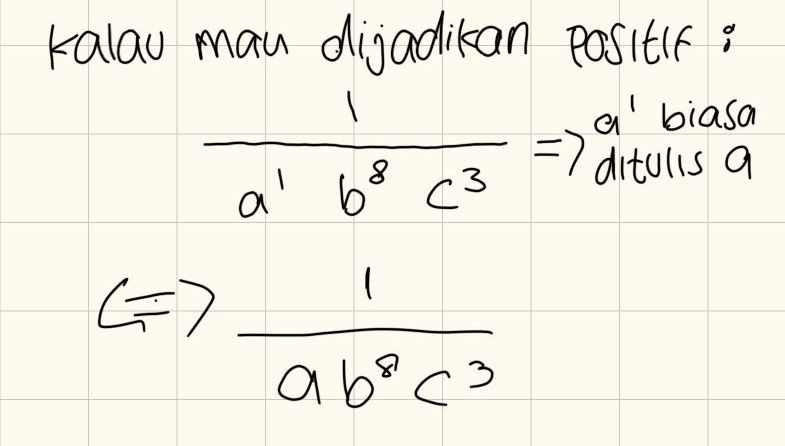 kalau mau dijadikan positif :
1
a¹ b⁸ c³
=> a¹ biasa
ditulis a
<=> 1
a b⁸ c³